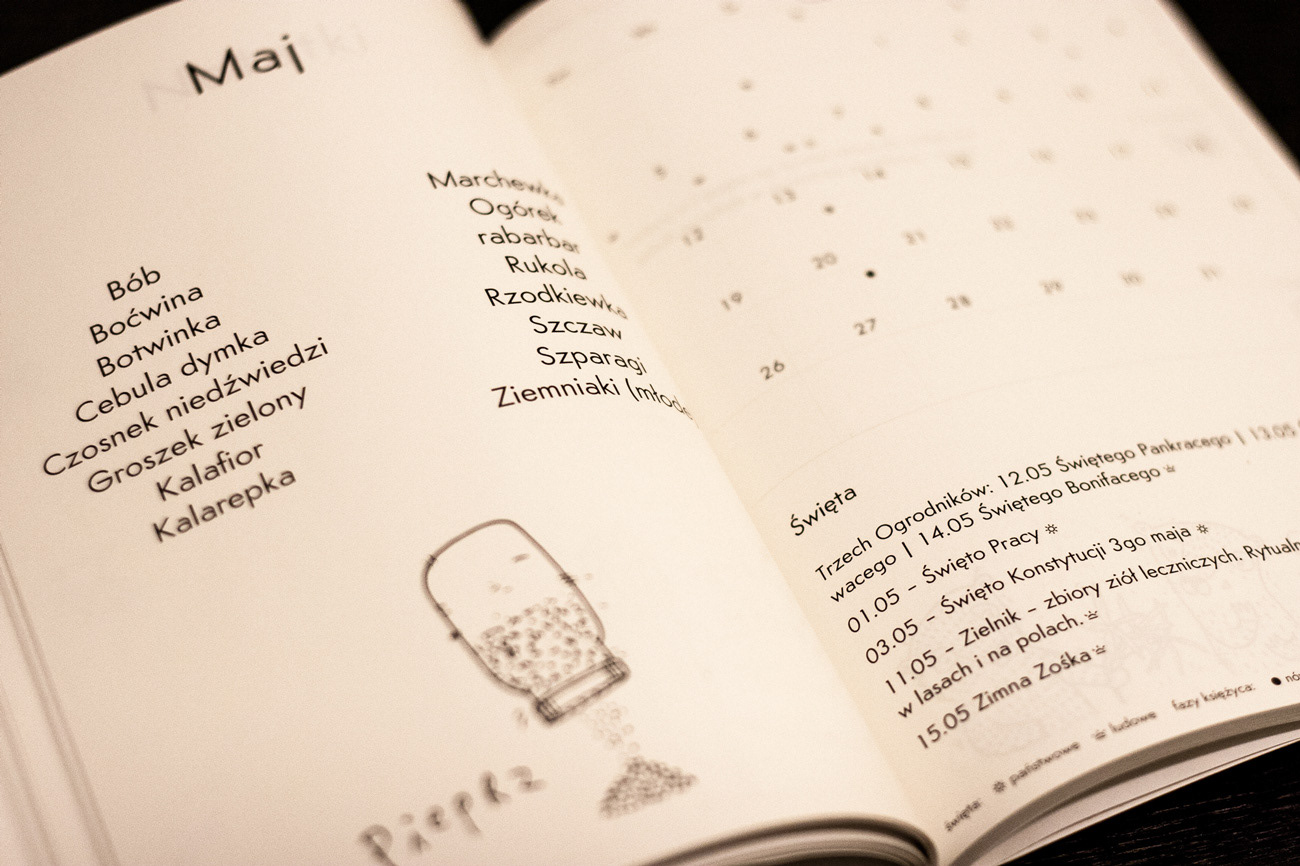 Maj
Bób
Boćwina
Botwinka
Cebula dymka
Czosnek niedźwiedzi
Groszek zielony
Kalafior
Kalarepka
Marchewka
Ogórek
rabarbar
Rukola
Rzodkiewka
Szczaw
Szparagi
Ziemniaki (młode
Pieprz
12 13 14
19 20 21
26 27 28
Święta
Trzech Ogrodników: 12.05 Świętego Pankracego | 13.05
wacego | 14.05 Świętego Bonifacego
01.05 - Święto Pracy
03.05 - Święto Konstytucji 3go maja
11.05 - Zielnik - zbiory ziół leczniczych. Rytualn
w lasach i na polach.
15.05 Zimna Zośka
święta: państwowe ludowe fazy księżyca: